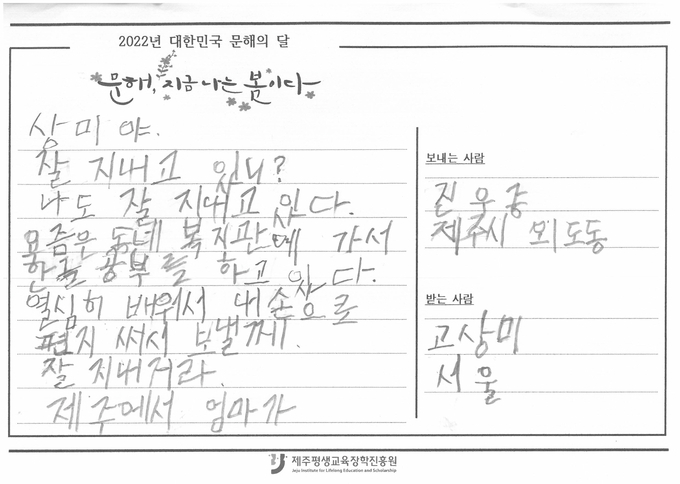 2022년 대한민국 문해의 달
문해, 지금 나는 봄이다
상미야.
잘 지내고 있니?
나도 잘 지내고 있다.
요즘은 동네 복지관에 가서
한글 공부를 하고 있다.
열심히 배워서 내 손으로
편지 써서 보낼께.
잘 지내거라.
제주에서 엄마가
보내는 사람
제주시 외도동
받는 사람
고상미
서울
제주평생교육장학진흥원
Jeju Institute for Lifelong Education and Scholarship